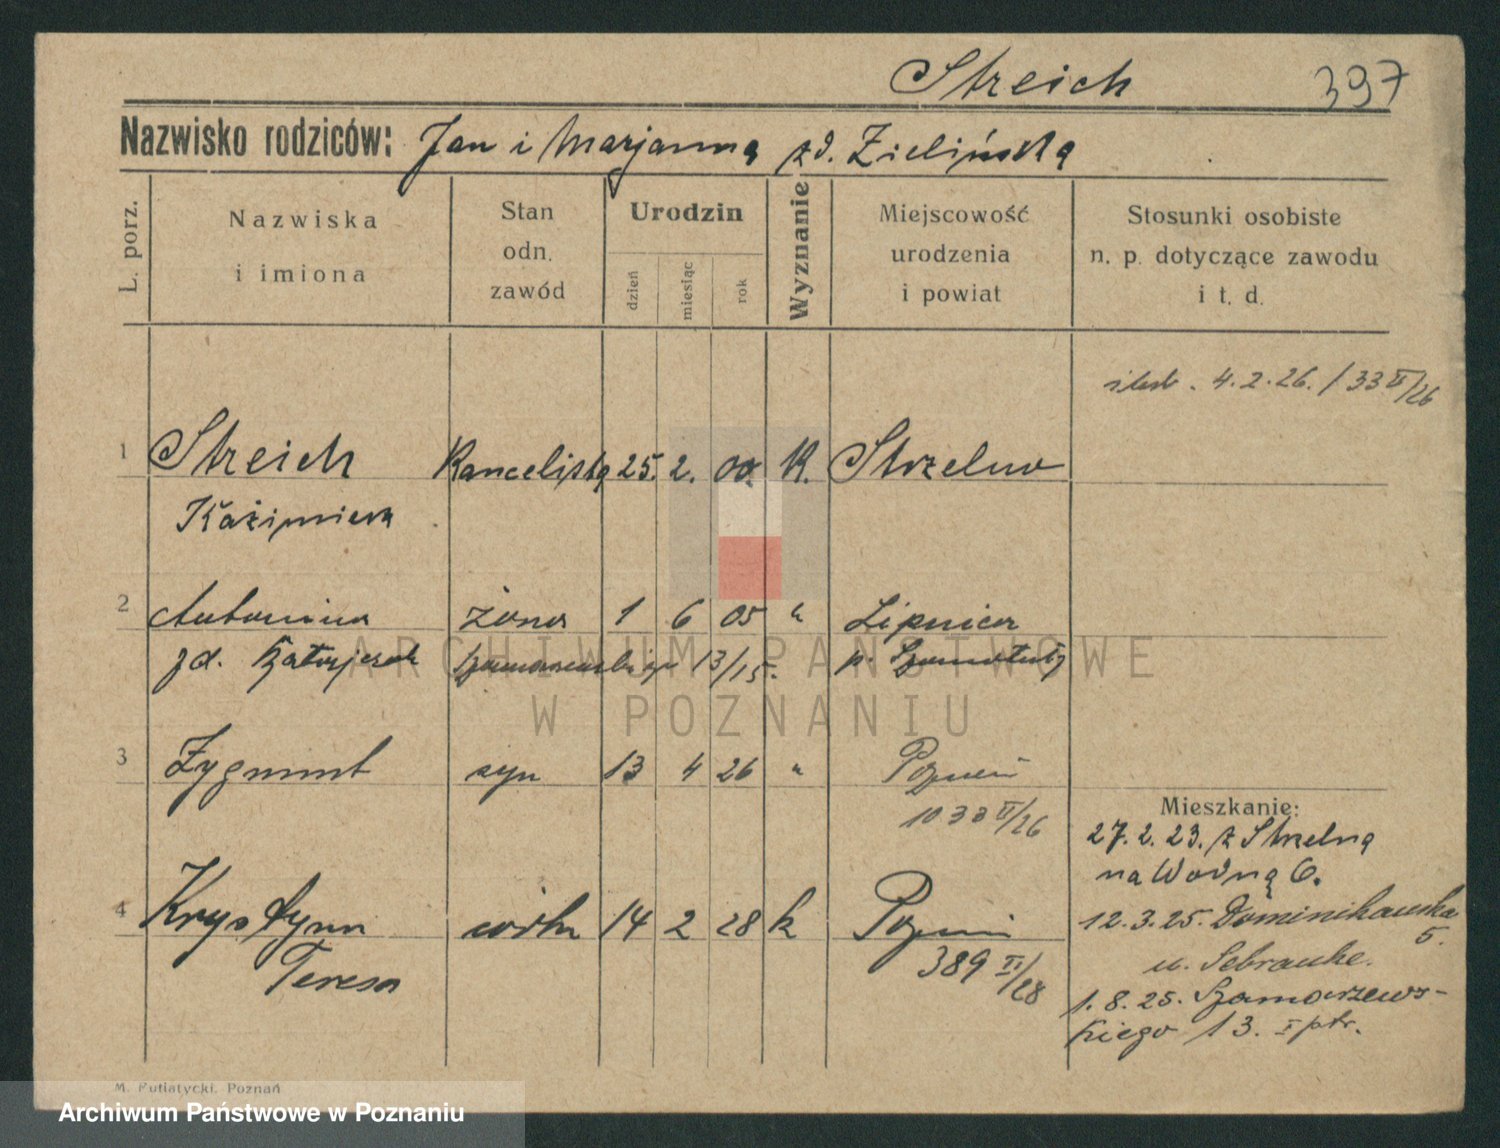 Streich 397
Nazwisko rodziców: Jan i Marjanna zd. Zielińska
L. porz.
Nazwiska
i imiona
Stan
odn.
zawód
Urodzin
dzień
miesiąc
rok
Wyznanie
Miejscowość
urodzenia
i powiat
Stosunki osobiste
n. p. dotyczące zawodu
i t. d.
4.2.26. / 33 II/26
1 Streich Kancelista 25. 2. 00. K. Strzelno
Kaźimierz
2 Antonina żona 1 6 05 " Lipnica
zd. 13/15. p. Szamotuły
ARCHIWUM PAŃSTWOWE
W POZNANIU
3 Zygmunt syn 13 4 26 " Poznań
1033 II/26
4 Krystyna córka 14 2 28 k Poznań
Teresa 389 II/28
Mieszkanie:
27.2.23. z Strzelna
na Wodną 6.
12.3.25. Dominikańska
5.
u. Sebranke.
1.8.25. Szamarzews-
kiego 13. I ptr.
M. Putiatycki, Poznań
Archiwum Państwowe w Poznaniu